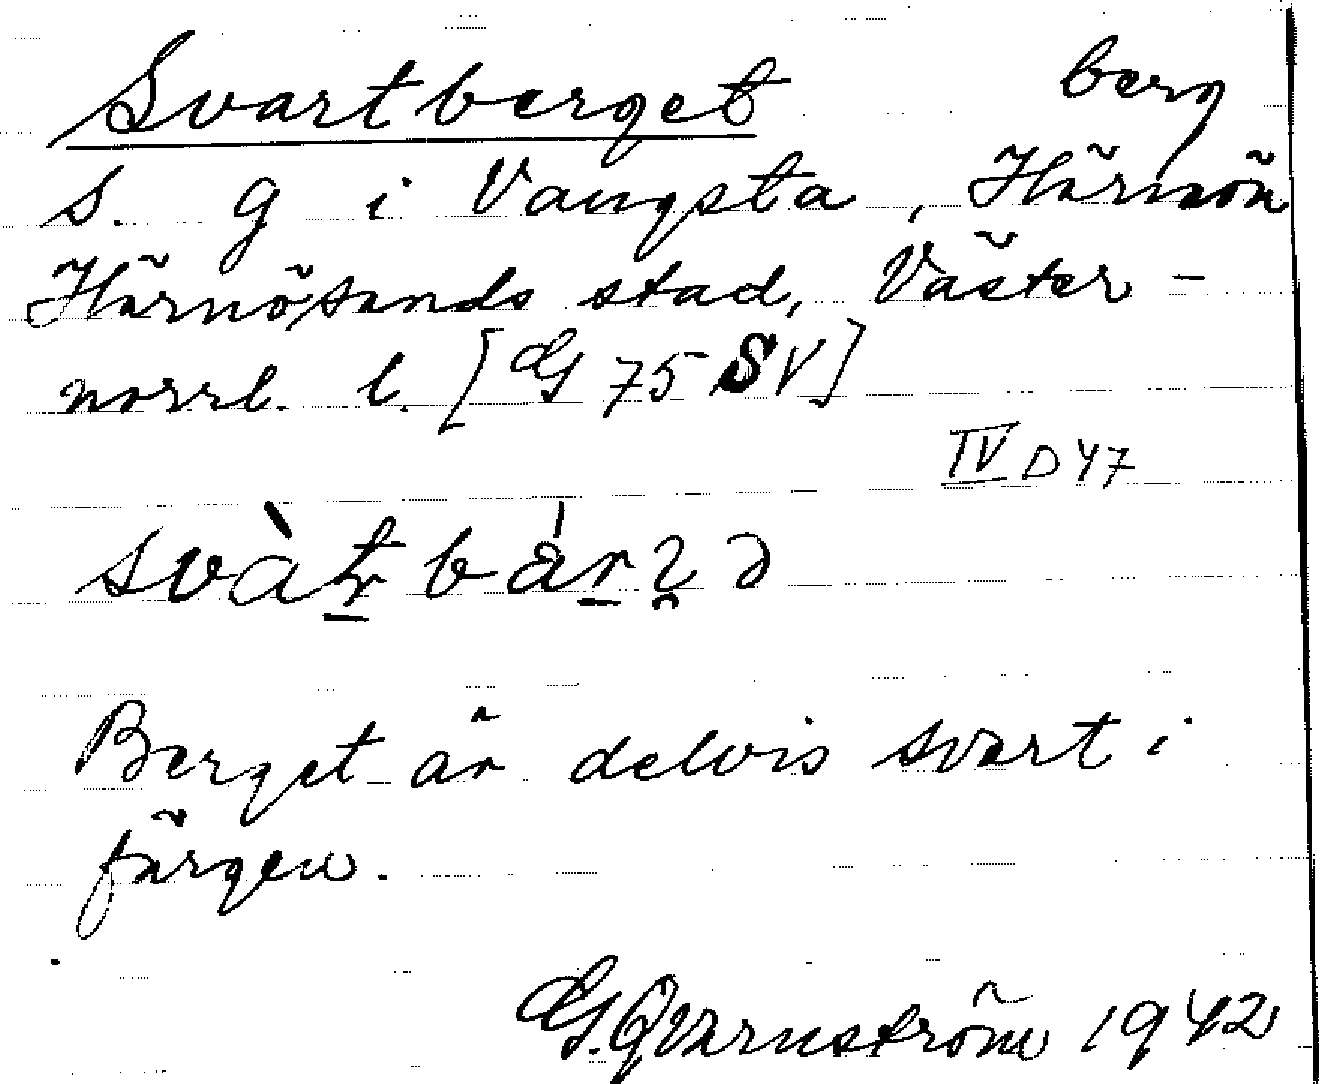 Svartberget berg
s. g i Vangsta, Härnön
Härnösands stad, Väster-
norrl. l. [G 75 SV]
IV D 47
svàt̠bár̠
Berget är delvis svart i
färgen.
G. Qvarnström 1942